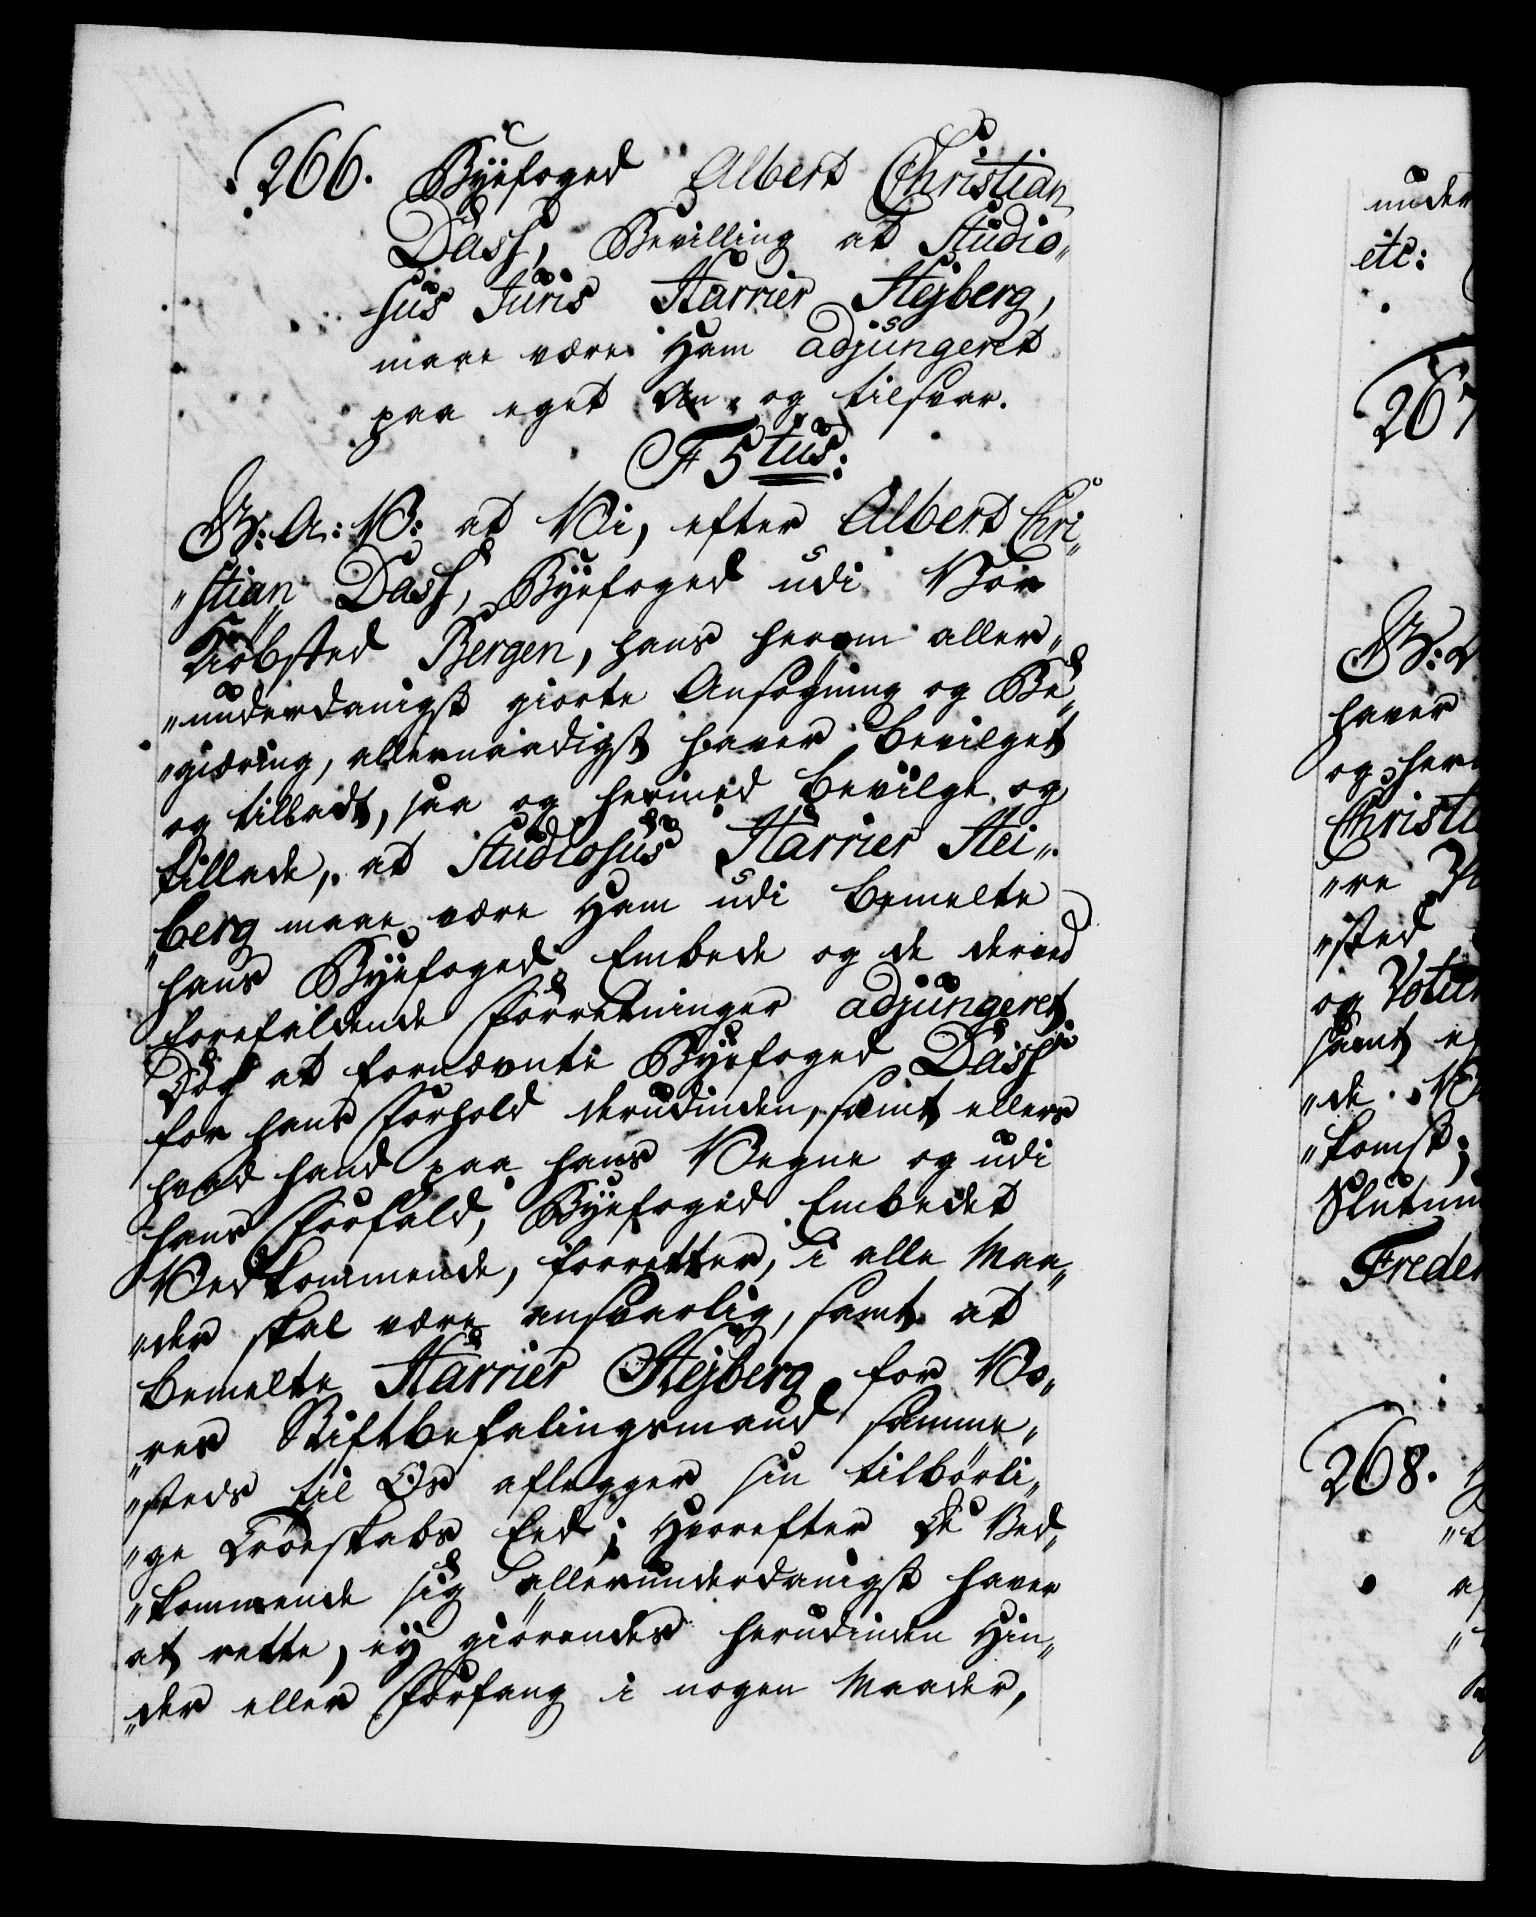 266. Byefoged Albert Christian
Dass, Bevilling at Studio„
sus Juris Harrier Hejberg,
maae være Ham adjungeret
paa eget An- og tilsvar.
F 5tus:
G: A: V: at Vi, efter Albert Chri„
„stian Dass, Byefoged udi Vor
Kiøbsted Bergen, hans herom aller„
„underdanigst giorte Ansøgning og Be„
„giæring, allernaadigst haver bevilget
og tilladt, saa og hermed bevilge og
tillade, at Studiosus Harrier Hei„
„berg maae være Ham udi bemelte
hans Byefoged Embede og de derved
forefaldende Forretninger adjungeret
Dog at fornævnte Byefoged Dass
for hans Forhold derudinden, samt ellers
hvad hand paa hans Vegne og udi
hans Forfald, Byefoged Embedet
Vedkommende, forretter, i alle Maa„
„der skal være ansvarlig, samt at
bemelte Harrier Hejberg for Vo„
„res Stiftbefalingsmand samme„
„steds til Os aflegger sin tilbørli„
„ge Troeskabs Eed; Hvorefter de Ved„
„kommende sig allerunderdanigst haver
at rette, ey giørendes herudinden Hin„
„der eller Forfang i nogen Maader,
under
etc:
267
haver
og her
Christi
„re
„sted
og Votum
samt
„de
„komst;
Slutum
Freder
268.